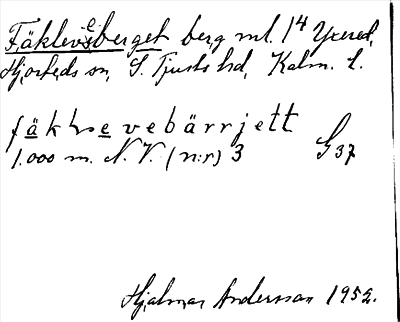 Fäklevseberget berg ml. 1⁴ Yxered,
Hjorteds sn, S. Tjusts hd, Kalm. l.
fäklsevebärrjett
1.000 m. N.V. (n:r) 3 G 37
Hjalmar Andersson 1952.